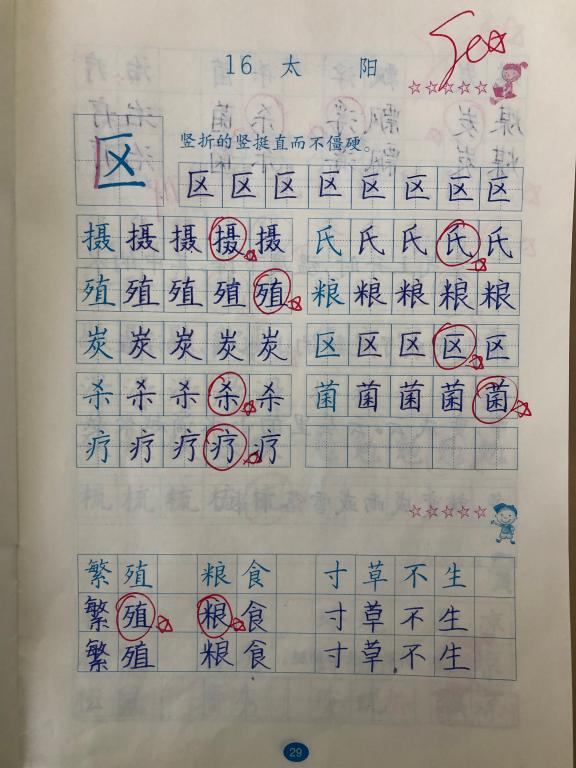 16 太 阳
竖折的竖挺直而不僵硬。
区
区 区 区 区 区 区 区 区
摄 摄 摄 摄 摄 氏 氏 氏 氏 氏
殖 殖 殖 殖 殖 粮 粮 粮 粮 粮
炭 炭 炭 炭 炭 区 区 区 区 区
杀 杀 杀 杀 杀 菌 菌 菌 菌 菌
疗 疗 疗 疗 疗
繁 殖 粮 食 寸 草 不 生
繁 殖 粮 食 寸 草 不 生
繁 殖 粮 食 寸 草 不 生
29